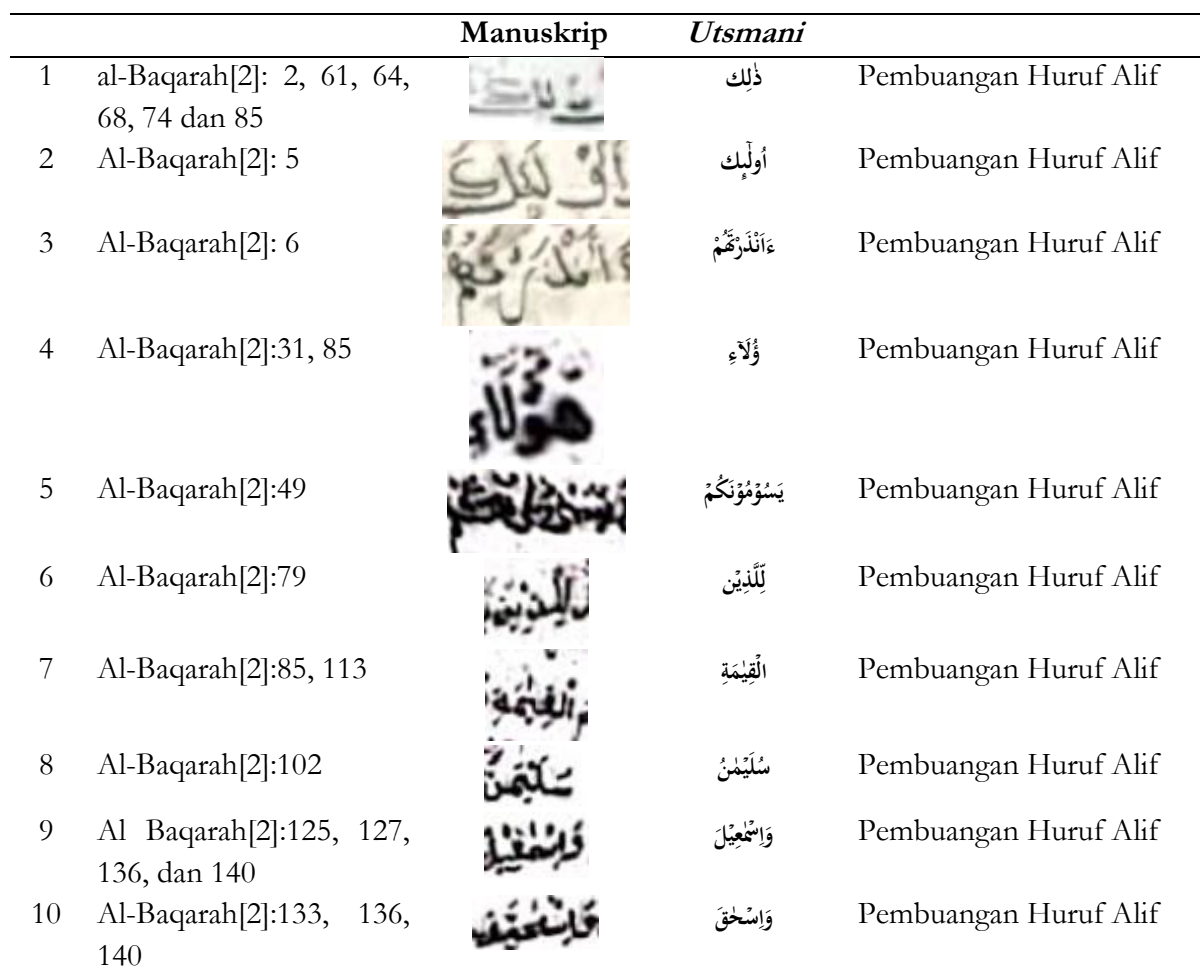 Manuskrip Utsmani
1 al-Baqarah[2]: 2, 61, 64, ذٰلِك Pembuangan Huruf Alif
68, 74 dan 85
2 Al-Baqarah[2]: 5 اُولٰۤىِٕك Pembuangan Huruf Alif
3 Al-Baqarah[2]: 6 ءَاَنْذَرْتَهُمْ Pembuangan Huruf Alif
4 Al-Baqarah[2]:31, 85 هَؤُلَاءِ ؤُلَآءِ Pembuangan Huruf Alif
5 Al-Baqarah[2]:49 يَسُوْمُوْنَكُمْ Pembuangan Huruf Alif
6 Al-Baqarah[2]:79 لِّلَّذِيْن Pembuangan Huruf Alif
7 Al-Baqarah[2]:85, 113 الْقِيٰمَةِ Pembuangan Huruf Alif
8 Al-Baqarah[2]:102 سُلَيْمٰنُ Pembuangan Huruf Alif
9 Al Baqarah[2]:125, 127, وَاِسْمٰعِيْلَ Pembuangan Huruf Alif
136, dan 140
10 Al-Baqarah[2]:133, 136, وَاِسْحٰقَ Pembuangan Huruf Alif
140